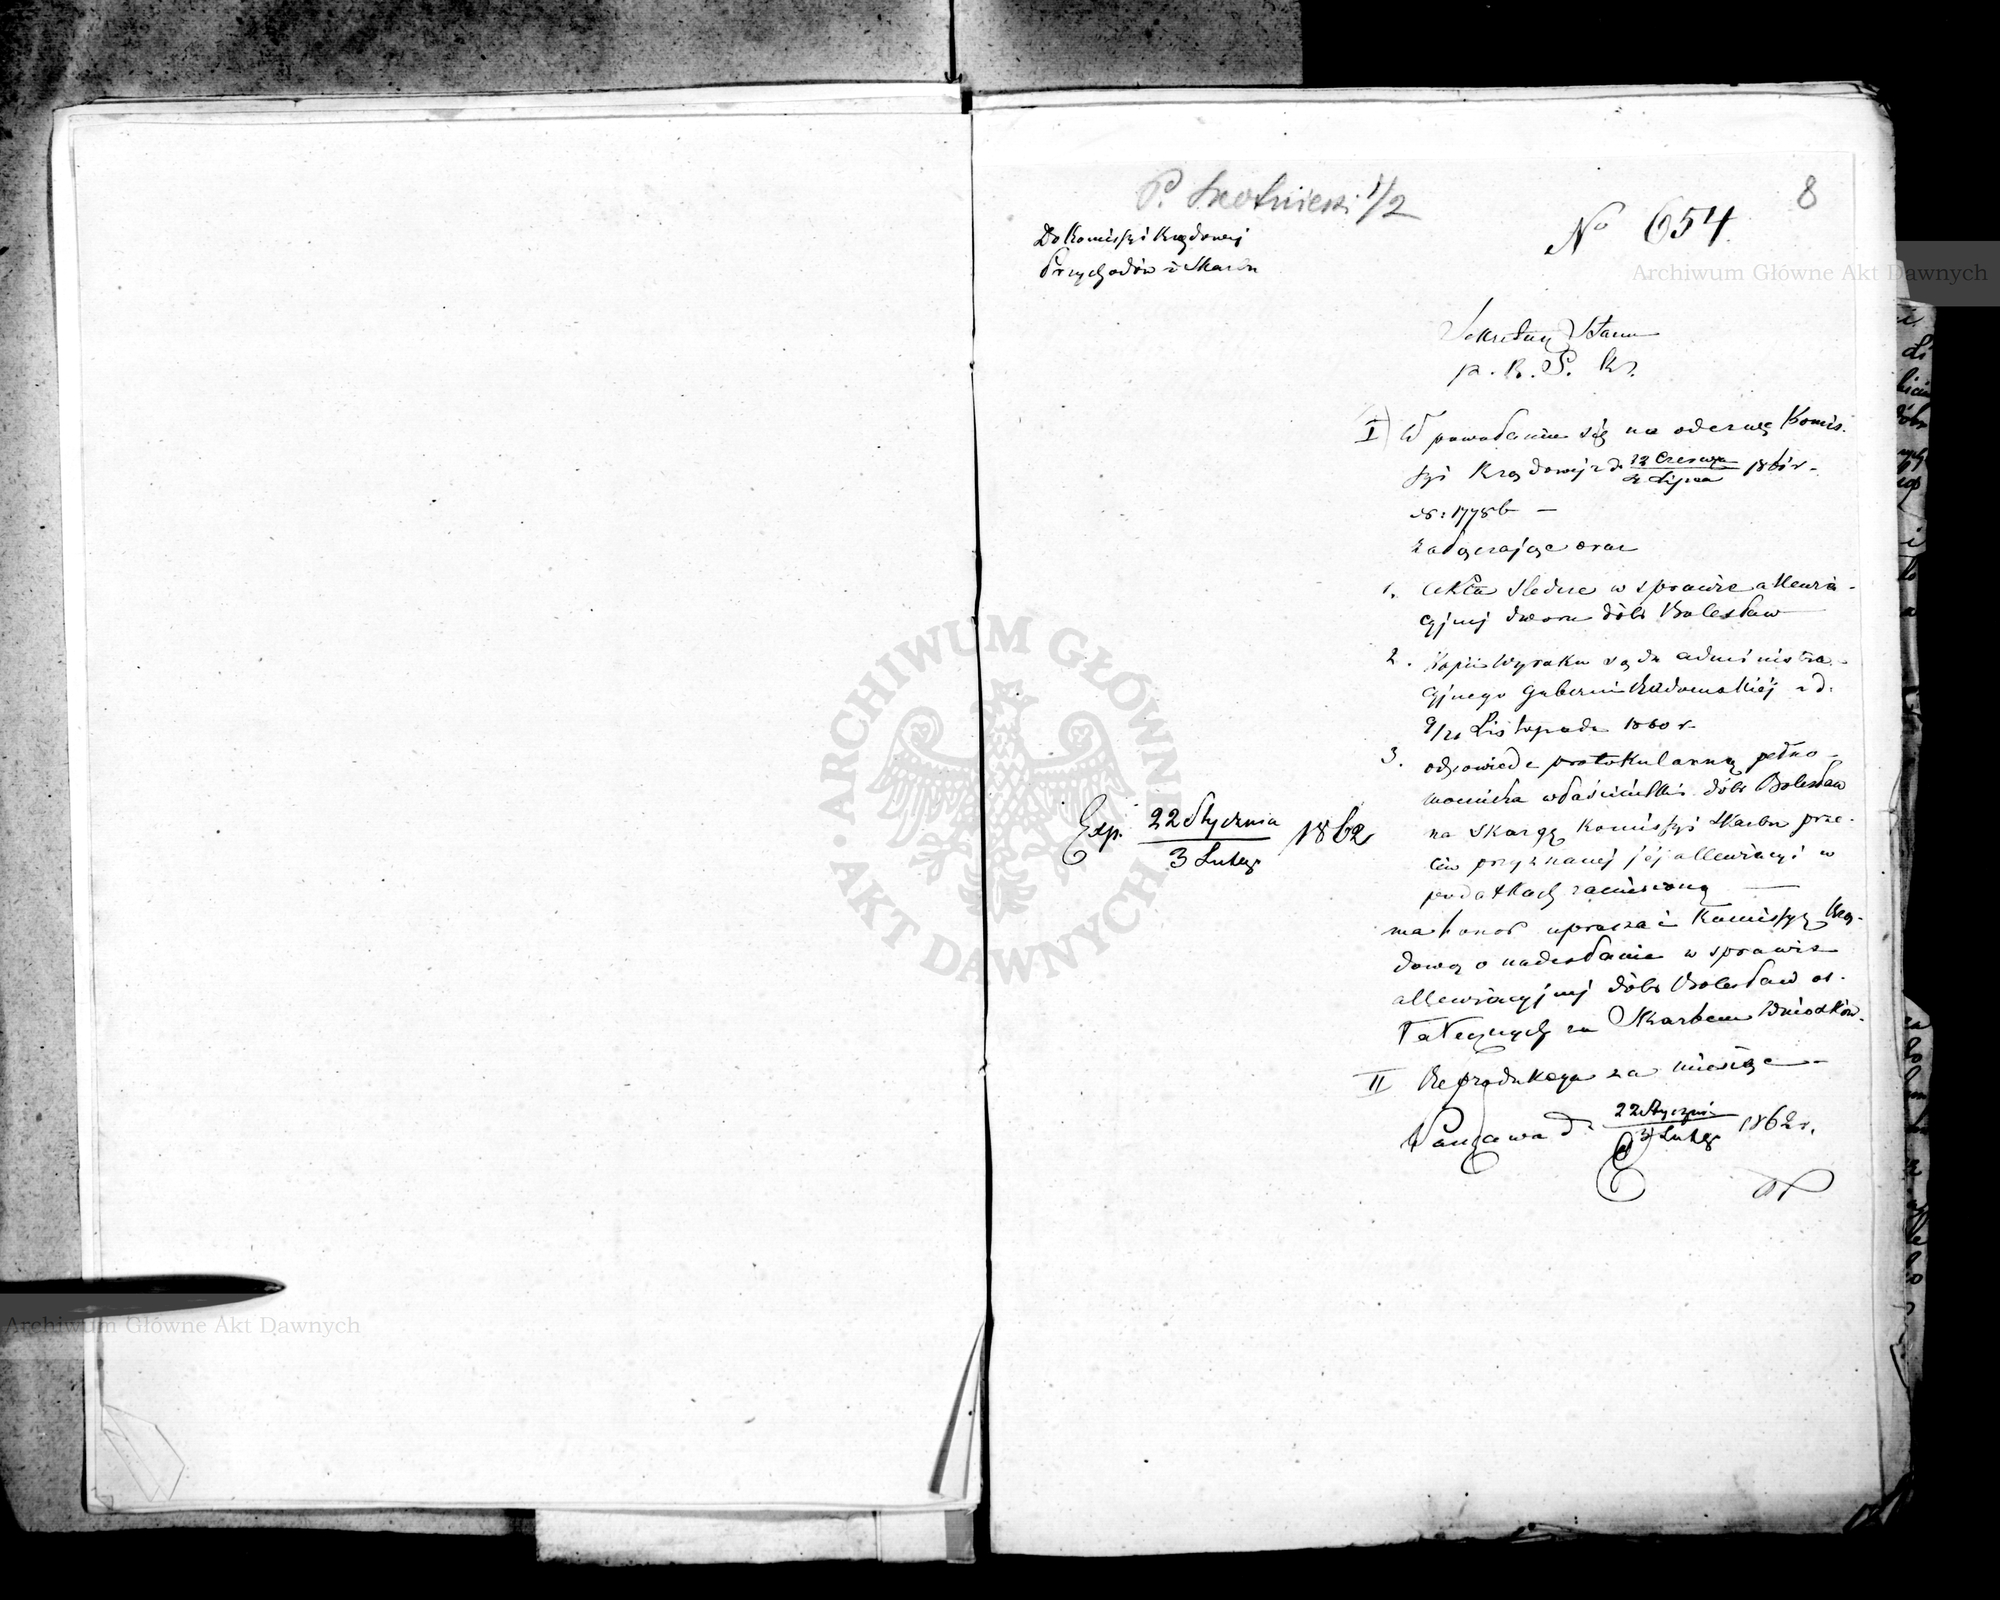 8
P. Skotnicki 1/2
No 654.
Do Komissyi Rządowej
Przychodów i Skarbu
Sekretarz Stanu
p. R. S. Kr.
I) W powołaniu się na odezwę Komis-
syi Rządowej z d. 22 Czerwca / 4 Lipca 1861 r.
N: 17786 —
załączając oraz
1. Akta śledcze w sprawie allewia-
cyjnej dworu dóbr Bolesław
2. Kopii Wyroku sądu administra-
cyjnego Gubernii Radomskiej z d.
9/21 Listopada 1860 r.
3. odpowiedź protokularną pełno-
mocnika właścicielki dóbr Bolesław
na skargę Komissyi Skarbu prze-
ciw przyznanej jej allewiacyi w
podatkach zaniesioną —
ma honor upraszać Komissyę Rzą-
dową o nadesłanie w sprawie
allewiacyjnej dóbr Bolesław os-
tatecznych za Skarbem Wniosków.
II Reprodukcya za miesiąc —
Warszawa d. 22 Stycznia / 3 Lutego 1862 r.
Exp. 22 Stycznia / 3 Lutego 1862
Archiwum Główne Akt Dawnych
ARCHIWUM GŁÓWNE AKT DAWNYCH
Archiwum Główne Akt Dawnych